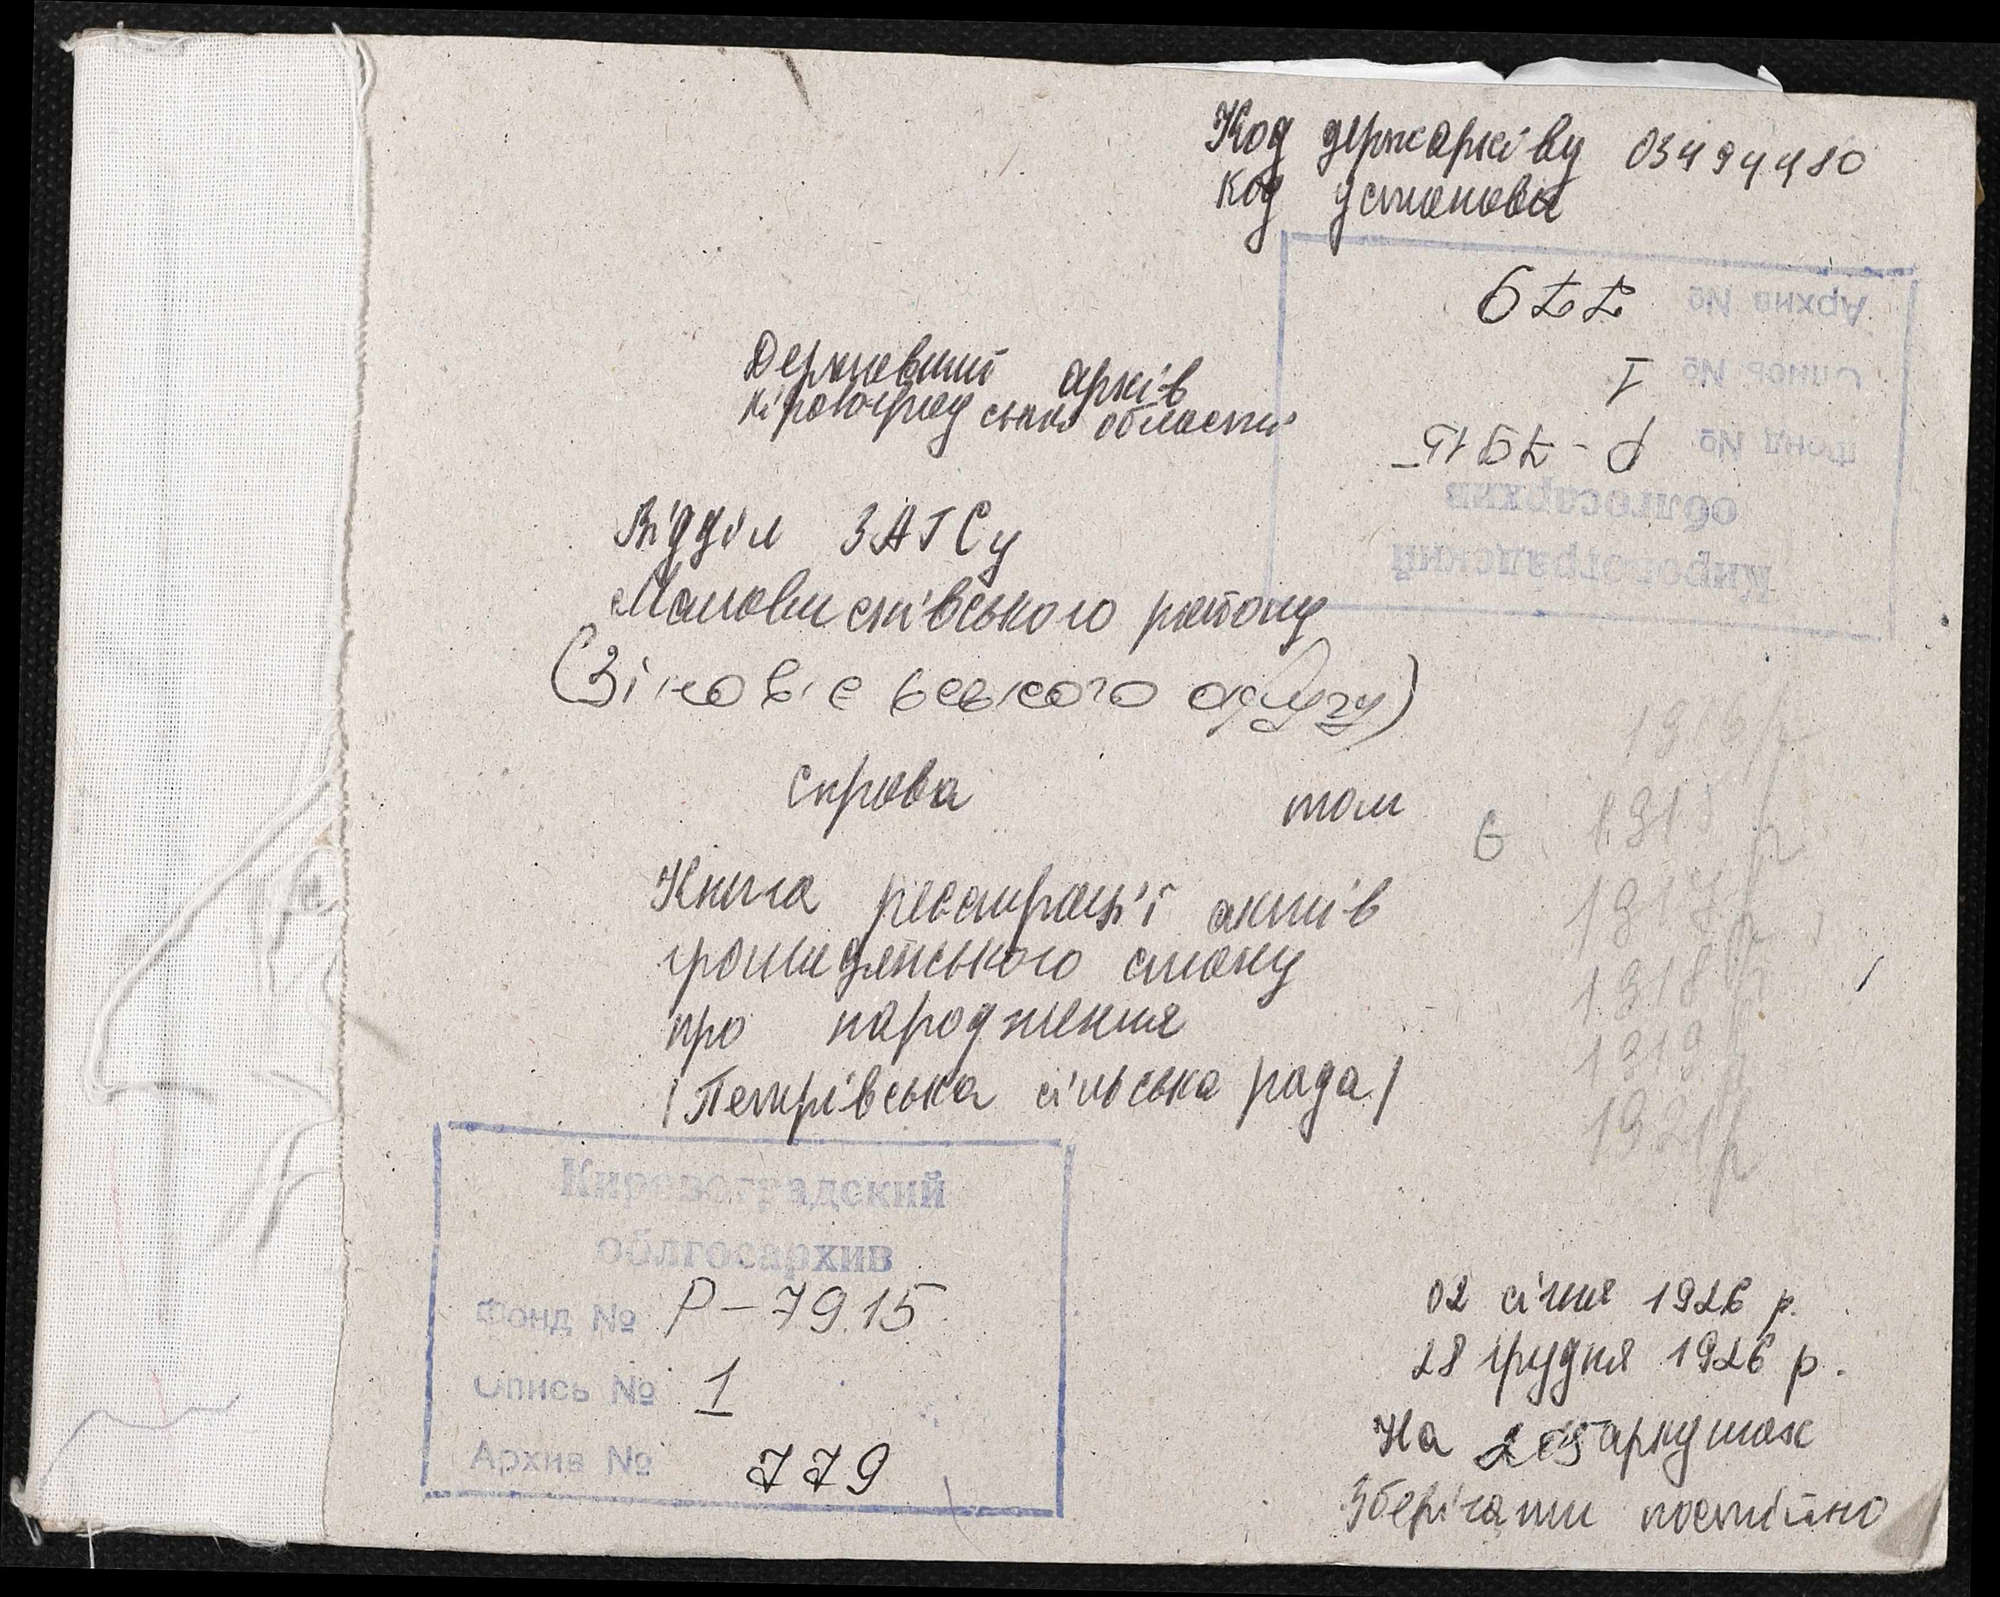 Код держархіву 03494480
Код установи
Архив № 779
Опись № 1
Фонд № Р-7915
облгосархив
Кировоградский
Державний архів
Кіровоградської області
Відділ ЗАГСу
Маловисківського району
(Зінов'євського округу)
справа том
Книга реєстрації актів
громадянського стану
про народження
/Петрівська сільська рада/
1917р
1918р
1919р
1921р
Кировоградский
облгосархив
Фонд № Р-7915
Опись № 1
Архив № 779
02 січня 1926 р.
28 грудня 1926 р.
На аркушах
Зберігати постійно